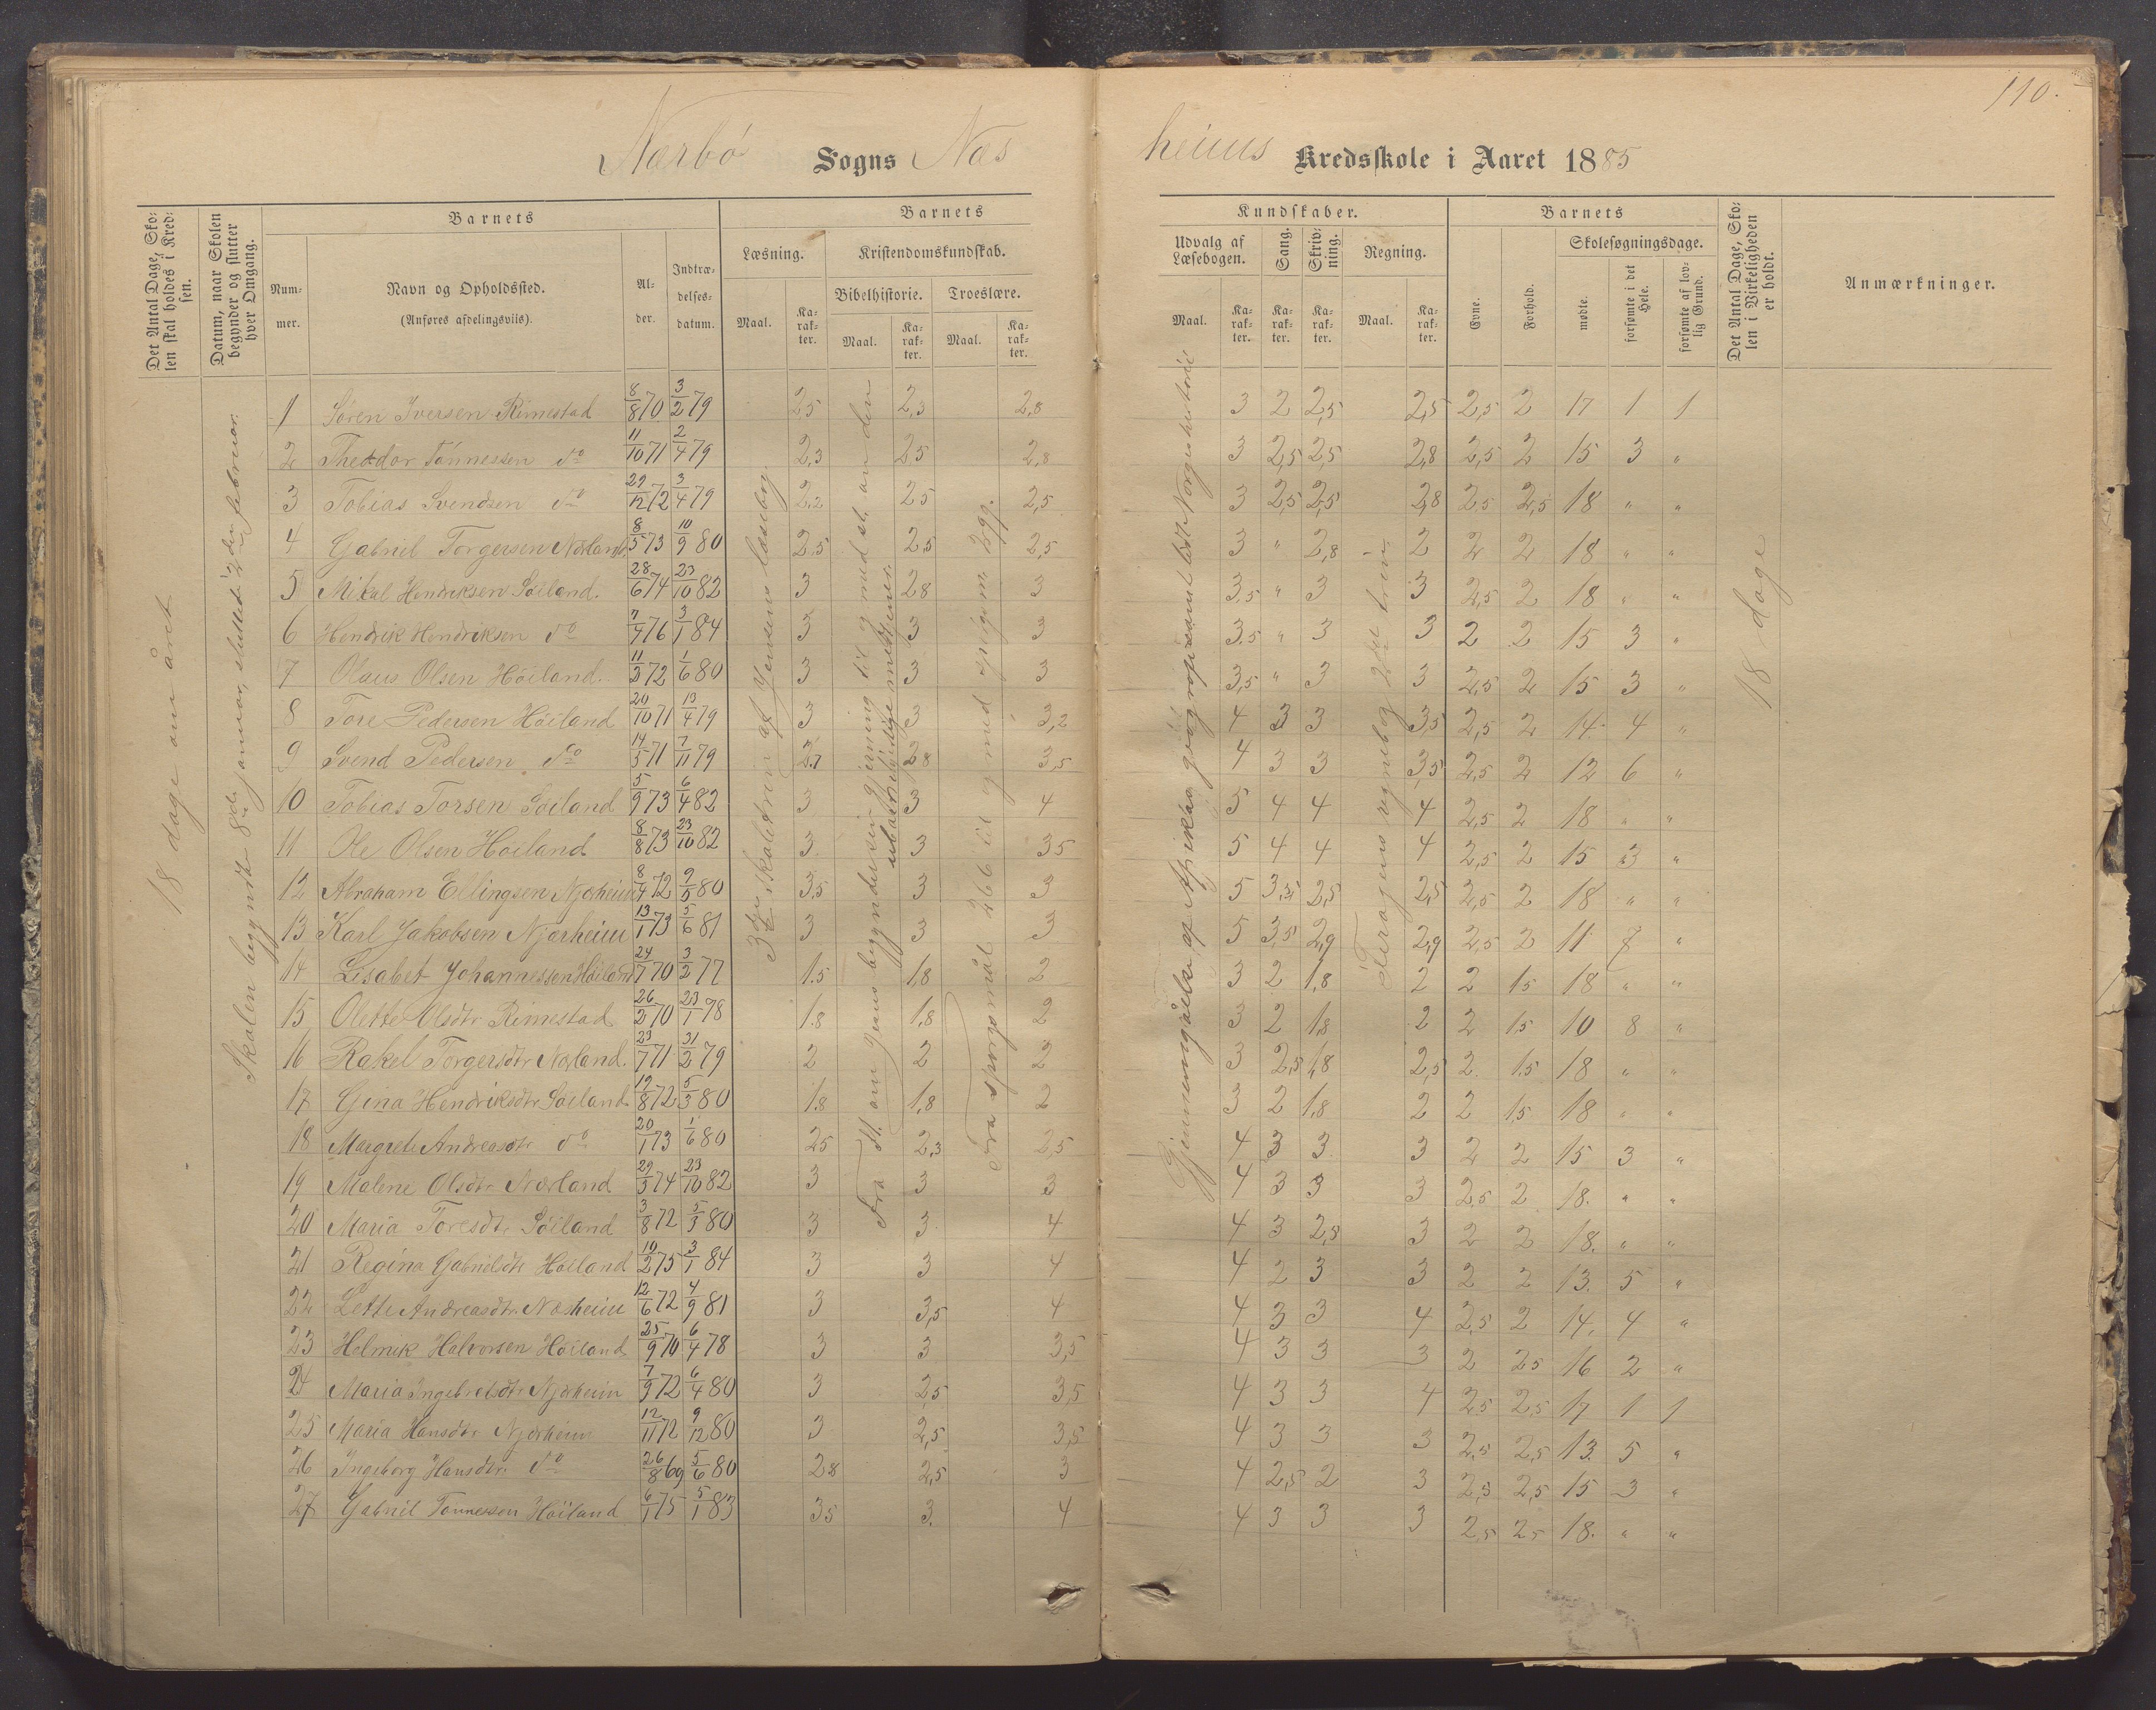 110.
Nærbö Sogns Næs
heims Kredsskole i Aaret 1885
Det Antal Dage, Skolen skal holdes i Kredsen.
Datum, naar Skolen begynder og slutter hver Omgang.
Barnets
Nummer.
Navn og Opholdssted.
(Anføres afdelingsviis).
Alder.
Indtrædelsesdatum.
Barnets
Læsning.
Maal.
Karakter.
Kristendomskundskab.
Bibelhistorie.
Maal.
Karakter.
Troeslære.
Maal.
Karakter.
Kundskaber.
Udvalg af Læsebogen.
Maal.
Karakter.
Sang.
Karakter.
Skrivning.
Karakter.
Regning.
Maal.
Karakter.
Barnets
Evne.
Forhold.
Skolesøgningsdage.
mødte.
forsømte i det Hele.
forsømte af lovlig Grund.
Det Antal Dage, Skolen i Virkeligheden er holdt.
Anmærkninger.
18 dage om året
Skolen begyndte 8de januar, sluttet 2den februar.
3die skoletrin af Jensens læsebog
Fra st. om Jesus begynder sin gjerning til og med st. om den ubarmhjertige medtjener.
Fra spørgsmål 266 til og med spörgsm.
Gjennemgåelse af Afrikas geografi samt lidt Norgeshistorie
regnebog 2det trin
18 dage
1 Sören Iversen Rimestad 8/8 70 3/2 79 2,5 2,3 2,8 3 2 2,5 2,5 2,5 2 17 1 1
2 Theodor Tönnessen do 11/10 71 2/4 79 2,3 2,5 2,8 3 2,5 2,5 2,8 2,5 2 15 3 "
3 Tobias Svendsen do 29/12 72 3/4 79 2,2 2,5 2,5 3 2,5 2,5 2,8 2,5 2,5 18 " "
4 Gabriel Torgersen Nærland 8/5 73 10/9 80 2,5 2,5 2,5 3 " 2,8 2 2 2 18 " "
5 Mikal Hendriksen Söiland. 28/6 74 23/10 82 3 2,8 3 3,5 " 3 3 2,5 2 18 " "
6 Hendrik Hendriksen do 7/4 76 3/1 84 3 3 3 3,5 " 3 3 2 2 15 3 "
7 Olaus Olsen Höiland. 11/3 72 1/6 80 3 3 3 3,5 " 3 3 2,5 2 15 3 "
8 Tore Pedersen Höiland 20/10 71 13/4 79 3 3 3,2 4 3 3 3,5 2,5 2 14 4 "
9 Svend Pedersen do 14/5 71 7/11 79 2,7 2,8 3,5 4 3 3 3,5 2,5 2 12 6 "
10 Tobias Torsen Söiland 5/9 73 6/4 82 3 3 4 5 4 4 4 2,5 2 18 " "
11 Ole Olsen Höiland 8/8 73 23/10 82 3 3 3,5 5 4 4 4 2,5 2 15 3 "
12 Abraham Ellingsen Njærheim 8/4 72 9/5 80 3,5 3 3 5 3,5 2,5 2,5 2,5 2 18 " "
13 Karl Jakobsen Njærheim 13/1 73 5/6 81 3 3 3 5 3,5 2,9 2,9 2,5 2 11 7 "
14 Lisabet Johannessen Höiland 24/7 70 3/2 77 1,5 1,8 2 3 2 1,8 2 2 1,5 18 " "
15 Olette Olsdtr Rimestad 26/2 70 23/1 78 1,8 1,8 2 3 2 1,8 2 2 1,5 10 8 "
16 Rakel Torgersdtr Nærland. 23/7 71 31/2 79 2 2 2 3 2,5 1,8 2,5 2 1,5 18 " "
17 Gina Hendriksdtr Söiland 19/8 72 5/3 80 1,8 1,8 2 3 2 1,8 2 2 1,5 18 " "
18 Margrete Andreasdtr do 20/1 73 1/6 80 2,5 2,3 2,5 4 3 3 3 2 2 15 3 "
19 Malene Olsdtr Nærland 29/3 74 23/10 82 3 3 3 4 3 3 3 2,5 2 18. " "
20 Maria Toresdtr Söiland 3/8 72 5/3 80 3 3 4 4 3 2,8 3 2 2 18. " "
21 Regina Gabrielsdtr Höiland 19/2 75 3/1 84 3 3 4 4 2 3 3 2 2 13. 5 "
22 Lette Andreasdtr. Næsheim 12/6 72 4/9 81 3 3,5 4 4 3 3 4 2,5 2 14. 4 "
23 Helmik Halvorsen Höiland 25/9 70 6/4 78 3 3 3,5 4 3 3 3 2 2,5 16 2 "
24 Maria Ingebretsdtr Njærheim 7/9 72 6/4 80 3 2,5 3,5 4 3 3 4 2,5 2,5 17 1 1
25 Maria Hansdtr Njærheim 12/11 72 9/12 80 3 2,5 3,5 4 3 3 3 2,5 2,5 13. 5 "
26 Ingeborg Hansdtr. do 26/8 69 5/6 80 2,8 2,5 3 4 2,5 2 3 2,3 2,5 15 3 "
27 Gabriel Tönnessen Höiland 6/1 75 5/1 83 3,5 3. 4 4 3 3 3 2,5 2,5 18. " "